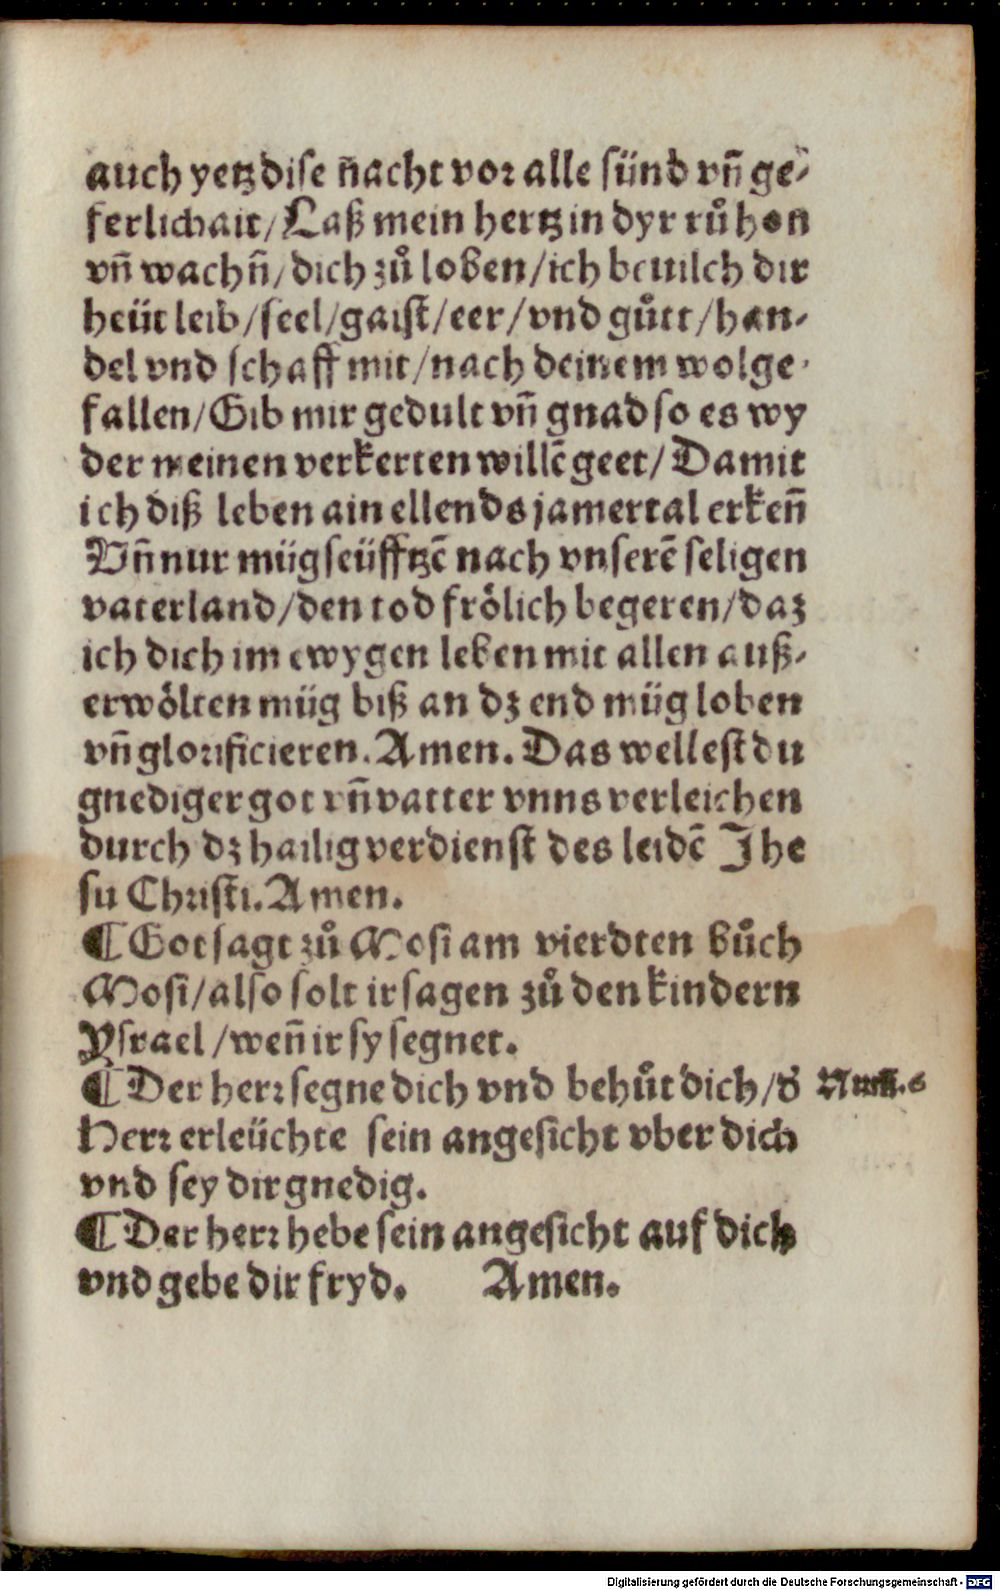 auch yetz dise n̄acht vor alle sünd vn̄ ge⸗
ferlichait/ Laß mein hertz in dyr růhen
vn̄ wachn̄/ dich zů loben/ ich beuilch dir
heüt leib/ seel/ gaist/ eer/ vnd gůtt/ han⸗
del vnd schaff mit/ nach deinem wolge⸗
fallen/ Gib mir gedult vn̄ gnad so es wy
der meinen verkerten willē geet/ Damit
ich diß leben ain ellends jamertal erken̄
Vn̄ nur müg seüfftzē nach vnserē seligen
vaterland/ den tod frölich begeren/ daz
ich dich im ewygen leben mit allen auß⸗
erwölten müg biß an dz end müg loben
vn̄ glorificieren. Amen. Das wellest du
gnediger got vn̄ vatter vnns verleichen
durch dz hailig verdienst des leidē Jhe
su Christi. Amen.
¶ Got sagt zů Mosi am vierdten bůch
Mosi/ also solt ir sagen zů den kindern
Ysrael/ wen̄ ir sy segnet.
¶ Der herr segne dich vnd behůt dich/ d' Num̄. 6
Herr erleüchte sein angesicht vber dich
vnd sey dir gnedig.
¶ Der herr hebe sein angesicht auf dich
vnd gebe dir fryd. Amen.
Digitalisierung gefördert durch die Deutsche Forschungsgemeinschaft - DFG